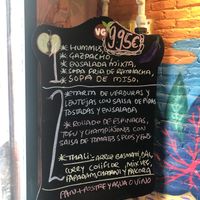 VG 9,95€
1
* HUMMUS,
* GAZPACHO,
* ENSALADA MIXTA,
* SOPA FRIA DE REMOLACHA,
* SOPA DE MISO.
2
* TARTA DE VERDURAS Y
LENTEJAS CON SALSA DE
TOSTADAS Y ENSALADA
* ROLLADO DE ESPINACAS,
TOFU Y CHAMPIÑONES CON
SALSA DE TOMATES SECOS Y
* THALI: ARROZ BASMATI, DAL,
CURRY COLIFLOR, MIX VEG,
PAPADAM, CHAPATI Y PAKORA
PAN + POSTRE Y AGUA O VINO